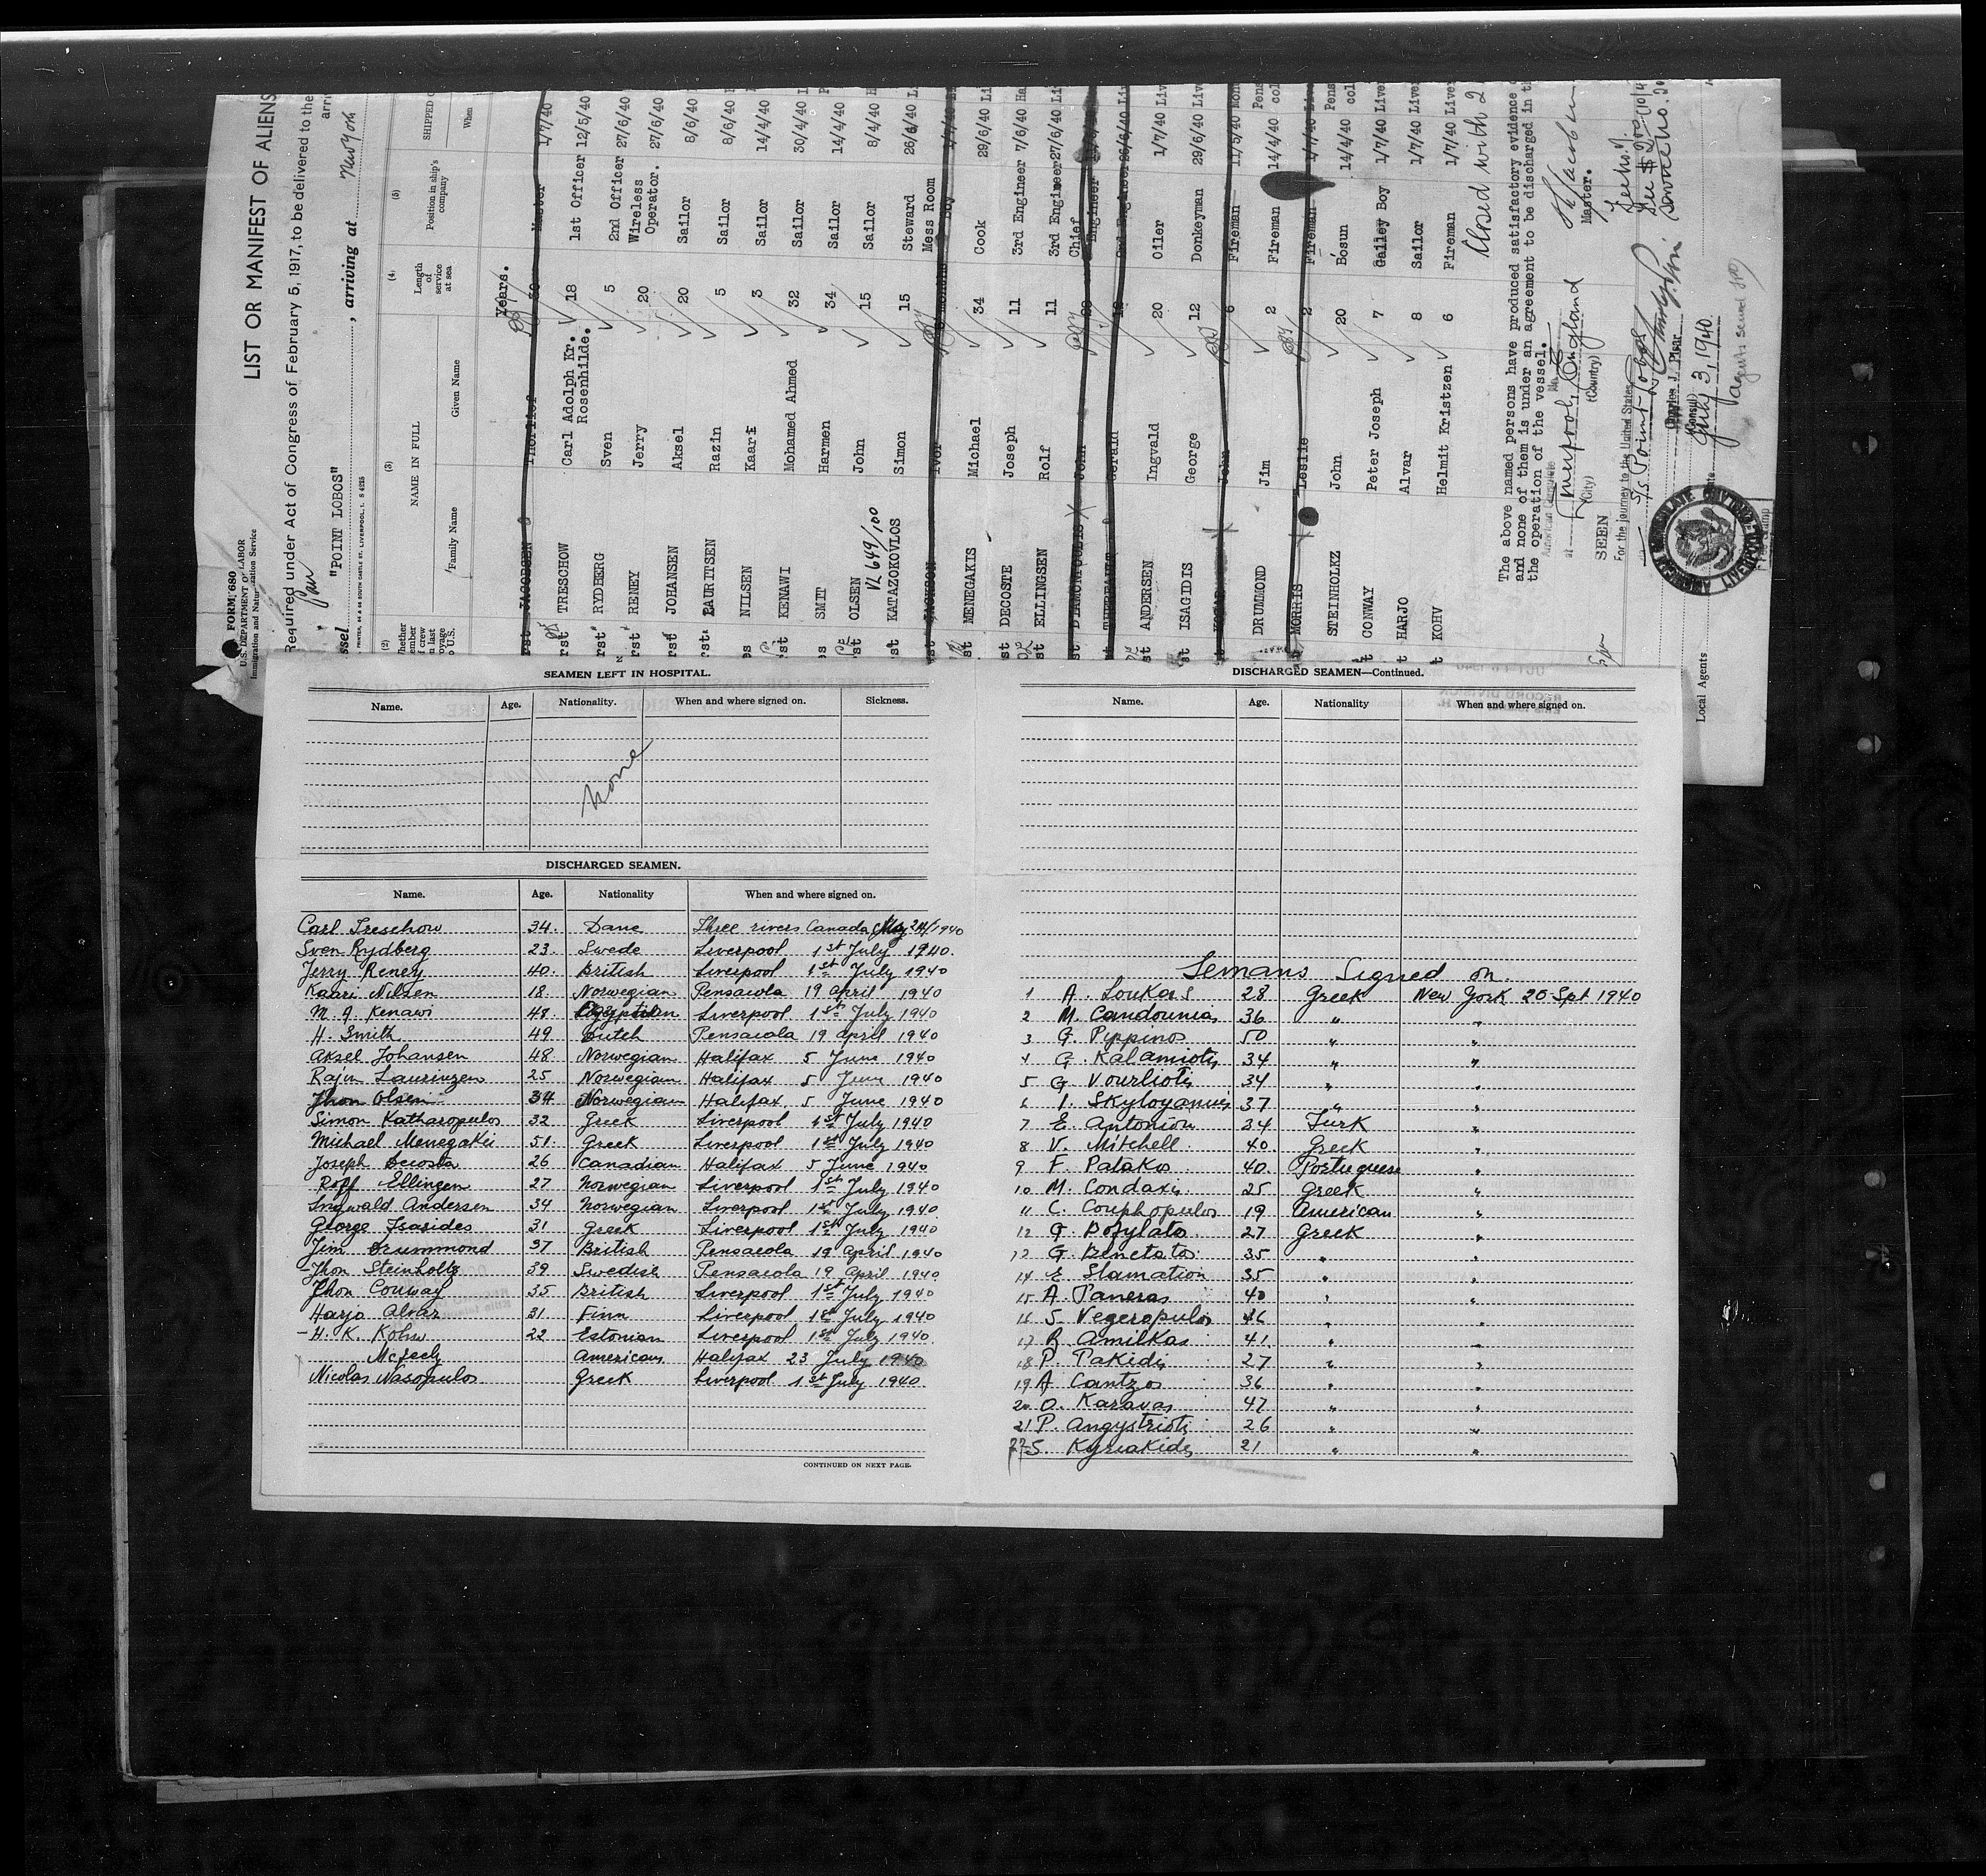 FORM 680
U.S. DEPARTMENT OF LABOR
Immigration and Naturalization Service
LIST OR MANIFEST OF ALIENS
Required under Act of Congress of February 5, 1917, to be delivered to the
Vessel "POINT LOBOS", arriving at New York
(2) (3) (4 (5)
NAME IN FULL
Family Name Given Name
Length of service at sea
Position in ship's company
SHIPPED
When
Years.
JACOBSEN Thorlief 30 Master 1/7/40
TRESCHOW Carl Adolph Kr. Rosenhilde. 18 1st Officer 12/5/40
RYDBERG Sven 5 2nd Officer 27/6/40
RENEY Jerry 20 Wireless Operator. 27/6/40
JOHANSEN Aksel 20 Sailor 8/6/40
LAURITSEN Razin 5 Sailor 8/6/40
NILSEN Kaare 3 Sailor 14/4/40
KENAWI Mohamed Ahmed 32 Sailor 30/4/40
SMIT Harmen 34 Sailor 14/4/40
OLSEN John 15 Sailor 8/4/40
VL 649/100
KATAZOKOVLOS Simon 15 Steward 26/6/40
JACKSON Ivor months Mess Room Boy 1/7/40
MENEGAKIS Michael 34 Cook 29/6/40
DECOSTE Joseph 11 3rd Engineer 7/6/40
ELLINGSEN Rolf 11 3rd Engineer 27/6/40
John 28 Chief Engineer
Gerald 2nd Engineer 26/6/40
ANDERSEN Ingvald 20 Oiler 1/7/40
ISAGIDIS George 12 Donkeyman 29/6/40
John 6 Fireman 11/5/40
DRUMMOND Jim 2 Fireman 14/4/40
MORRIS Leslie 2 Fireman 1/7/40
STEINHOLKZ John 20 Bosun 14/4/40
CONWAY Peter Joseph 7 Galley Boy 1/7/40
HARJO Alvar 8 Sailor 1/7/40
KOHV Helmit Kristzen 6 Fireman 1/7/40
Closed with 2
The above named persons have produced satisfactory evidence
and none of them is under an agreement to be discharged in
the operation of the vessel.
Master.
at Liverpool, England
(City) (Country)
SEEN
For the journey to the United States
S/S Point Lobos
Charles J. Pisar
(Consul)
Date July 3, 1940.
Local Agents
SEAMEN LEFT IN HOSPITAL.
Name. Age. Nationality. When and where signed on. Sickness.
None
DISCHARGED SEAMEN.
Name. Age. Nationality When and where signed on.
Carl Treschow 34. Dane Three rivers Canada May 24/1940
Sven Rydberg 23. Swede Liverpool 1st July 1940.
Jerry Reney 40. British Liverpool 1st July 1940
Kaari Nilsen 18. Norwegian Pensacola 19 April 1940
M. A Kenawi 48. Egyptian Liverpool 1st July 1940
H. Smith 49. Dutch Pensacola 19 april 1940
Aksel Johansen 48 Norwegian Halifax 5 June 1940
Rajin Laurinzen 25 Norwegian Halifax 5 June 1940
Jhon Olsen 34 Norwegian Halifax 5 June 1940
Simon Katharopulos 32 Greek Liverpool 1st July 1940
Michael Menegakis 51. Greek Liverpool 1st July 1940
Joseph Decosta 26 Canadian Halifax 5 June 1940
Roff Ellingen 27 Norwegian Liverpool 1st July 1940
Ingwald Andersen 34 Norwegian Liverpool 1st July 1940
George Isasides 31 Greek Liverpool 1st July 1940
Jim Drummond 37 British Pensacola 19 april 1940
Jhon Steinholtz 39 Swedish Pensacola 19 April 1940
Jhon Conway 35 British Liverpool 1st July 1940
Harjo Alvar 31 Finn Liverpool 1st July 1940
H. K. Kohv 22 Estonian Liverpool 1st July 1940.
McJeely American Halifax 23 July 1940
Nicolas Nasopulos Greek Liverpool 1st July 1940
CONTINUED ON NEXT PAGE.
DISCHARGED SEAMEN—Continued.
Name. Age. Nationality When and where signed on.
Semans Signed on.
1 A. Loukas 28 Greek New York 20 Spt 1940
2 M. Candounias 36 " "
3 G. Pippinos 50 " "
4 G. Kalamiotis 34 " "
5 G Vourliotis 34 " "
6 I. Skyloyannis 37 " "
7 E. Antoniou 34 Turk "
8 V. Mitchell 40. Greek "
9 F. Palakos 40. Portuguese "
10 M. Condaxis 25 Greek "
11 C. Couphopulos 19 American "
12 G. Bozylatos 27 Greek "
13 G. Benetatos 35 " "
14 E Stamation 35 " "
15 A. Paneras 40 " "
16 S. Vegeropulos 46 " "
17 R. Amilkas 41. " "
18 P. Pakidis 27 " "
19 A Cantzos 36 " "
20 O. Karavas 47 " "
21 P. Angystriotis 26 " "
22 S. Kyriakides 21 " "